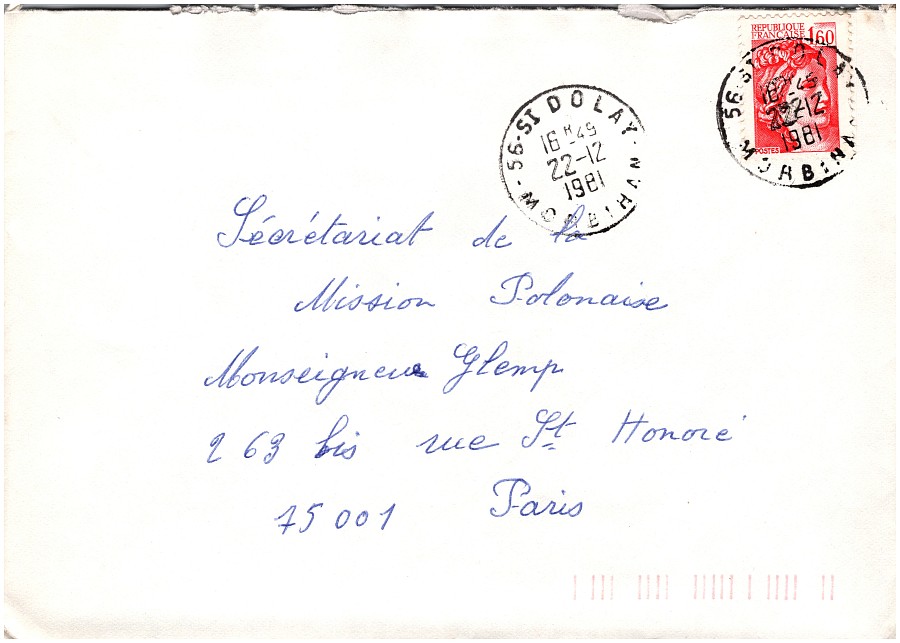 RÉPUBLIQUE
FRANÇAISE 1,60
POSTES
56-ST DOLAY
16H45
22-12
1981
MORBIHAN
56-ST DOLAY
16H45
22-12
1981
MORBIHAN
Sécrétariat de la
Mission Polonaise
Monseigneur Glemp
263 bis rue St Honoré
75001 Paris